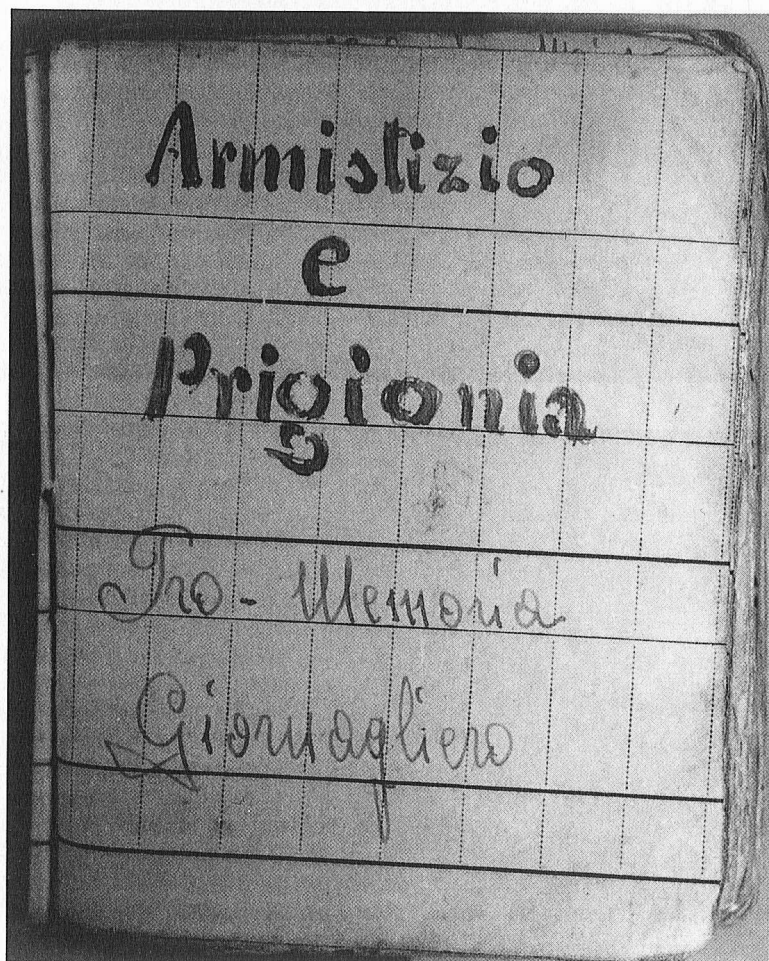 Armistizio
e
Prigionia
Pro-Memoria
Giornagliero